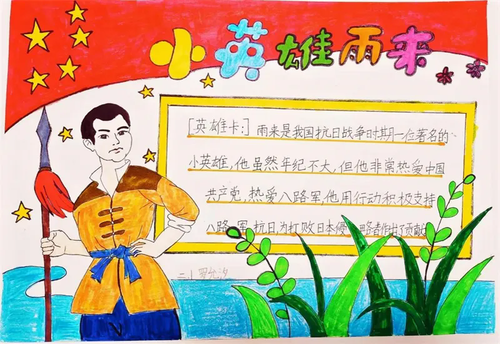 小英雄雨来
[英雄卡:] 雨来是我国抗日战争时期一位著名的
小英雄,他虽然年纪不大,但他非常热爱中国
共产党,热爱八路军,他用行动积极支持
八路军抗日,为打败日本侵略者作出了贡献